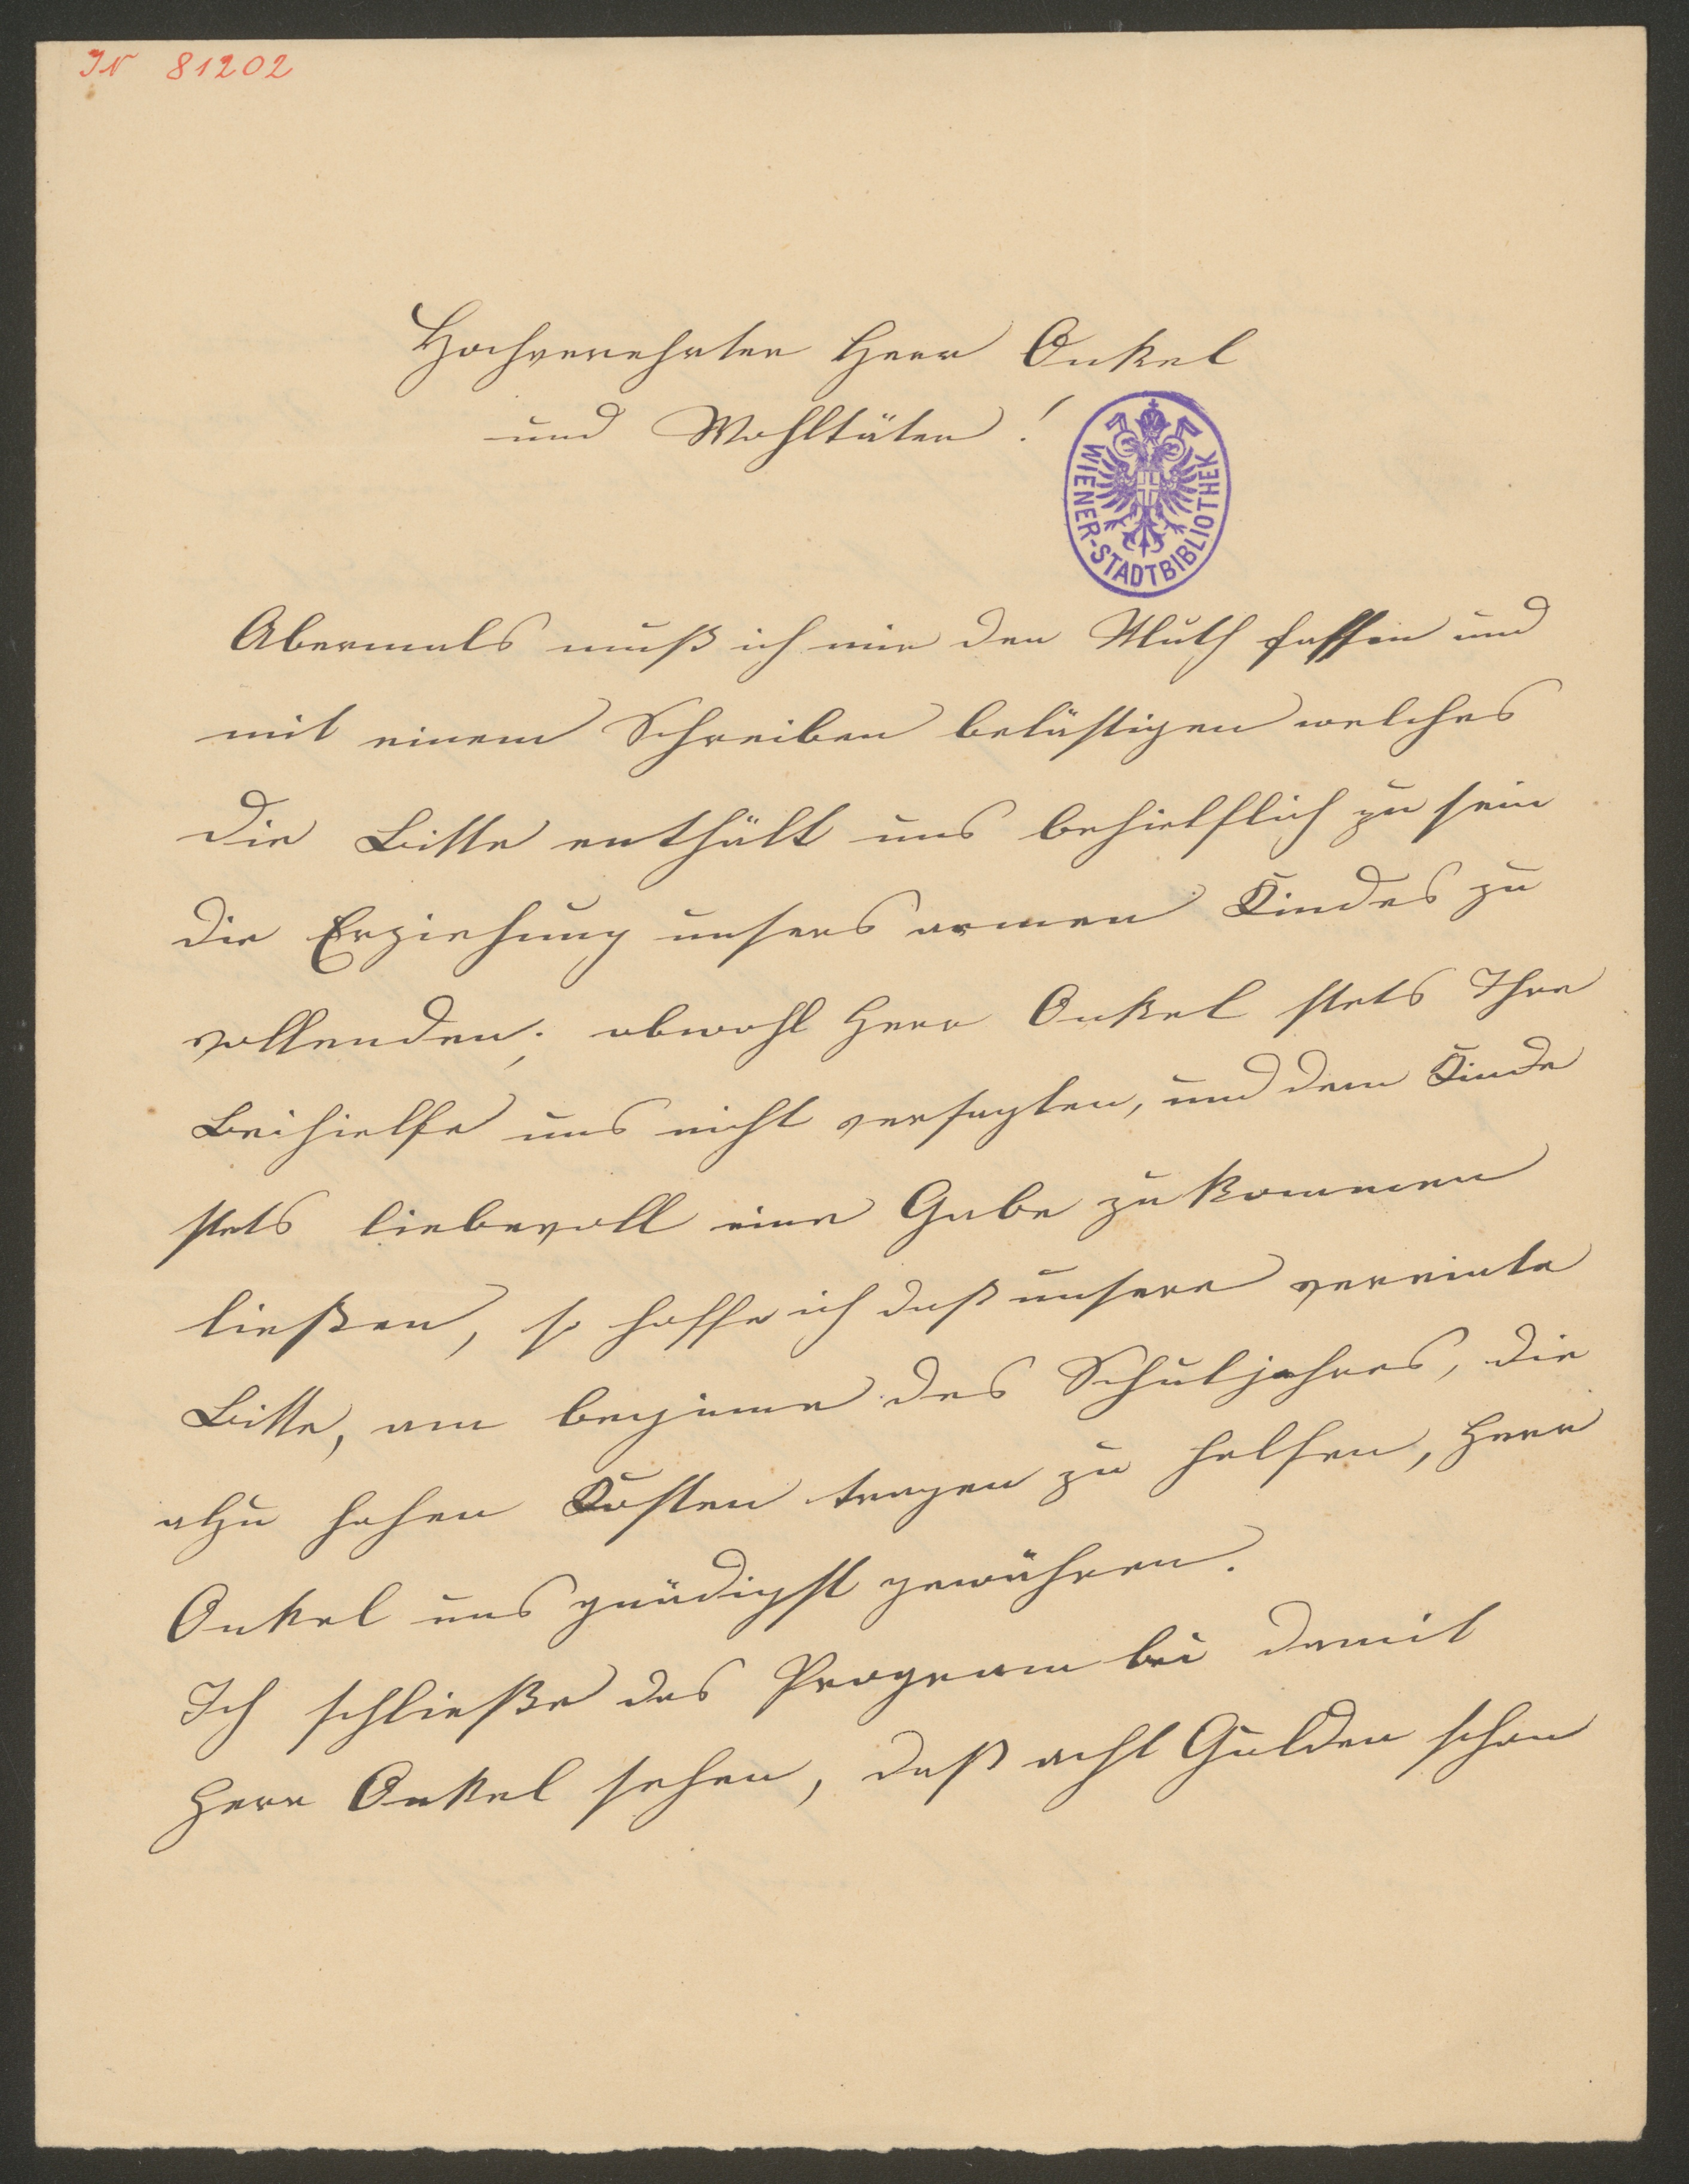 IN 81202
Hochverehrter Herr Onkel
und Wohltäter!
WIENER-STADTBIBLIOTHEK
Abermals muß ich mir den Muth fassen und
mit einem Schreiben belästigen welches
die Bitte enthält uns behielflich zu sein
die Erziehung unsers armen Kindes zu
vollenden; obwohl Herr Onkel stets Ihre
Beihielfe uns nicht versagten, und dem Kinde
stets liebevoll eine Gabe zu kommen
ließen, so hoffe ich daß unsere vereinte
Bitte, am beginne des Schuljahres, die
alzu hohen Kosten tragen zu helfen, Herr
Onkel uns gnädigst gewähren.
Ich schließe das Program bei damit
Herr Onkel sehen, daß acht Gulden schon